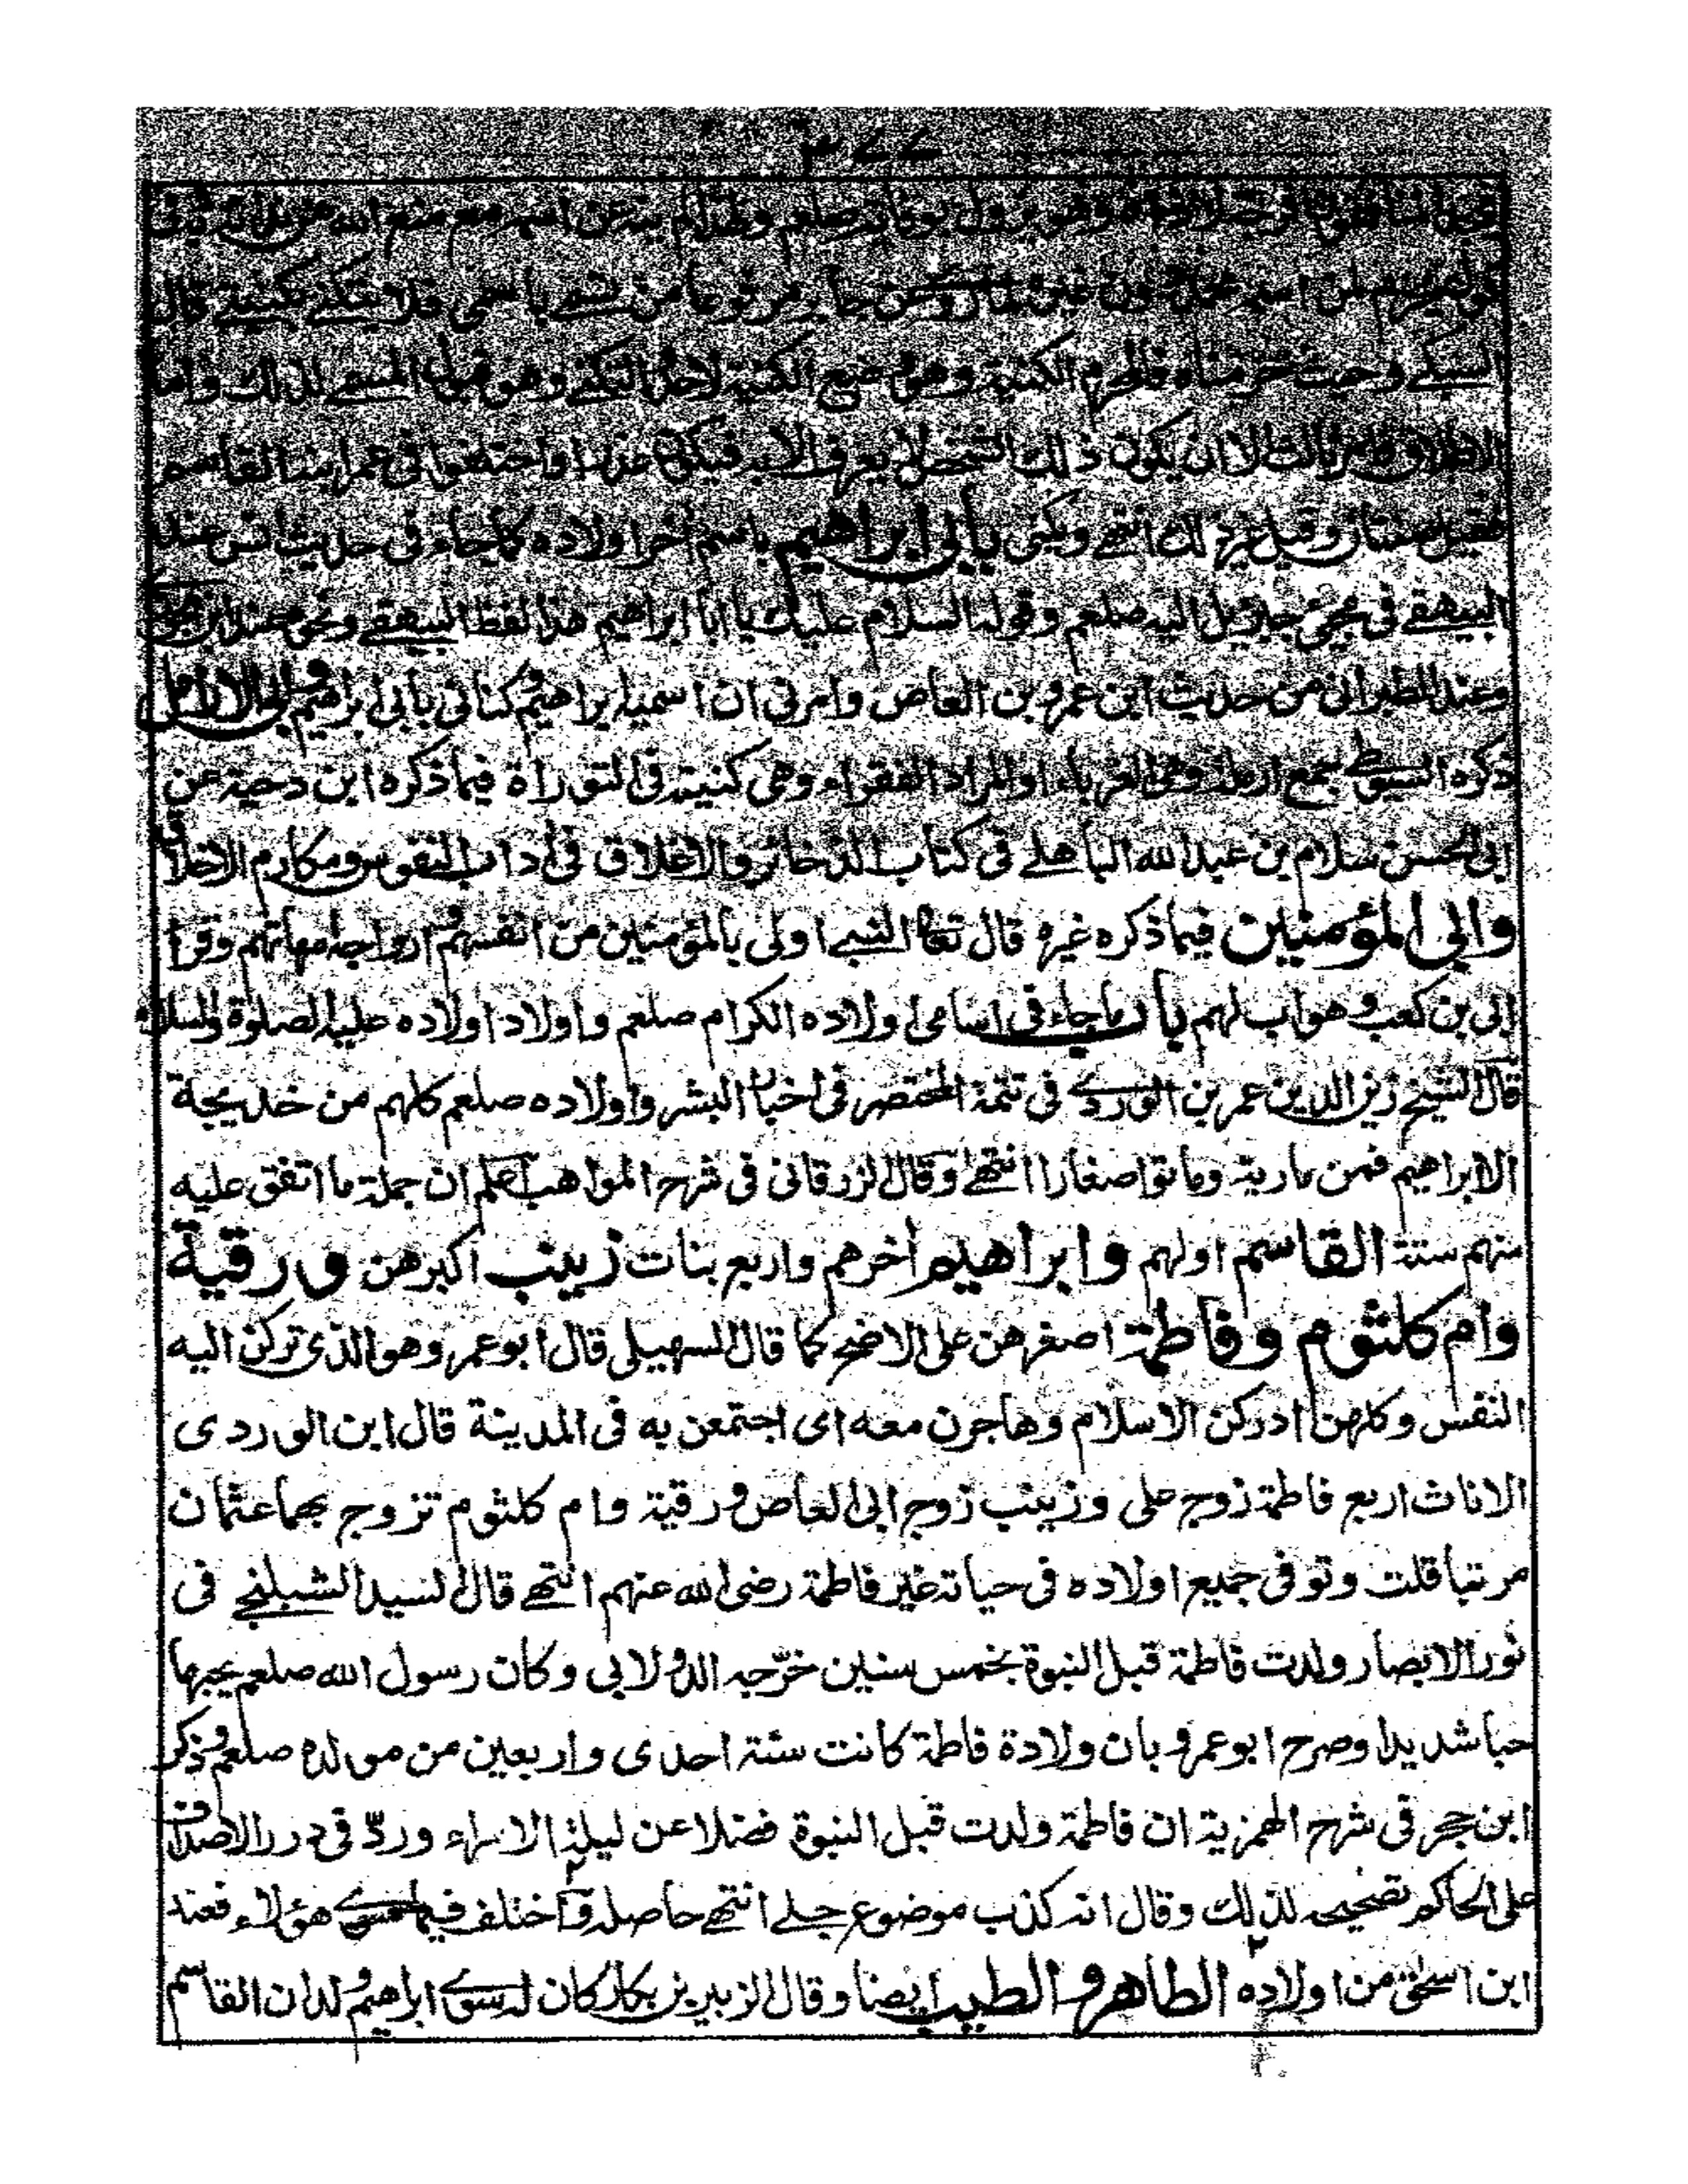 ٣٤٤
السبكي وحيث حرمناه فالمحرم الكنية وهو وضع الكنية لاحد والتكني وهو قبول المسمى لذلك واما
الاطلاق فامر ثالث الا ان يكون ذلك الشخص لا يعرف الا به فيكون عذرا واختلفوا في عمر ابنه القاسم
فقيل سنتان وقيل غير ذلك انتهى ويكنى بأبي ابراهيم باسم آخر اولاده كما جاء في حديث انس عند
البيهقي في مجئ جبريل اليه صلعم وقوله السلام عليك يا ابا ابراهيم هذا لفظ البيهقي ونحوه عند ابن
وعند الطبراني من حديث ابن عمرو بن العاص وامرني ان اسميه ابراهيم وكناني بأبي ابراهيم وبأبي الارامل
ذكره السيوطي جمع ارملة وهي الغرباء او المراد الفقراء وهي كنيته في التوراة فيما ذكره ابن دحية عن
ابي الحسن سلام بن عبد الله الباهلي في كتاب الذخائر والاغلاق في آداب النفوس ومكارم الاخلاق
وابي المؤمنين فيما ذكره غيره قال تعا النبي اولى بالمؤمنين من انفسهم وازواجه امهاتهم وقرأ
ابي بن كعب وهو اب لهم باب ما جاء في اسامي اولاده الكرام صلعم واولاد اولاده عليه الصلوة والسلام
قال الشيخ زين الدين عمر بن الوردي في تتمة المختصر في اخبار البشر واولاده صلعم كلهم من خديجة
الا ابراهيم فمن مارية وماتوا صغارا انتهى وقال الزرقاني في شرح المواهب اعلم ان جملة ما اتفق عليه
منهم ستة القاسم اولهم وابراهيم آخرهم واربع بنات زينب اكبرهن ورقية
وام كلثوم وفاطمة اصغرهن على الاصح كما قال السهيلي قال ابو عمر وهو الذي تركن اليه
النفس وكلهن ادركن الاسلام وهاجرن معه اى اجتمعن به في المدينة قال ابن الوردي
الاناث اربع فاطمة زوج علي وزينب زوج ابي العاص ورقية وام كلثوم تزوج بهما عثمان
مرتبا قلت وتوفي جميع اولاده في حياته غير فاطمة رضي الله عنهم انتهى قال السيد الشبلنجي في
نور الابصار ولدت فاطمة قبل النبوة بخمس سنين خرّجه الدولابي وكان رسول الله صلعم يحبها
حبا شديدا وصرح ابو عمرو بان ولادة فاطمة كانت سنة احدى واربعين من مولده صلعم وذكر
ابن حجر في شرح الهمزية ان فاطمة ولدت قبل النبوة فضلا عن ليلة الاسراء وردّ في درر الاصداف
على الحاكم تصحيحه لذلك وقال انه كذب موضوع جلي انتهى حاصله وآختلف فيما سوى هؤلاء فعند
ابن اسحق من اولاده الطاهر والطيب ايضا وقال الزبير بن بكار كان له سوى ابراهيم ولدان القاسم